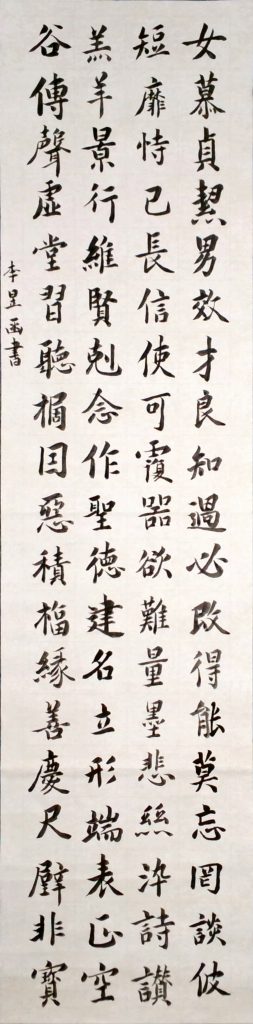 女慕貞絜男效才良知過必改得能莫忘罔談彼
短靡恃己長信使可覆器欲難量墨悲絲染詩讚
羔羊景行維賢剋念作聖德建名立形端表正空
谷傳聲虛堂習聽禍因惡積福緣善慶尺璧非寶
李昱函書